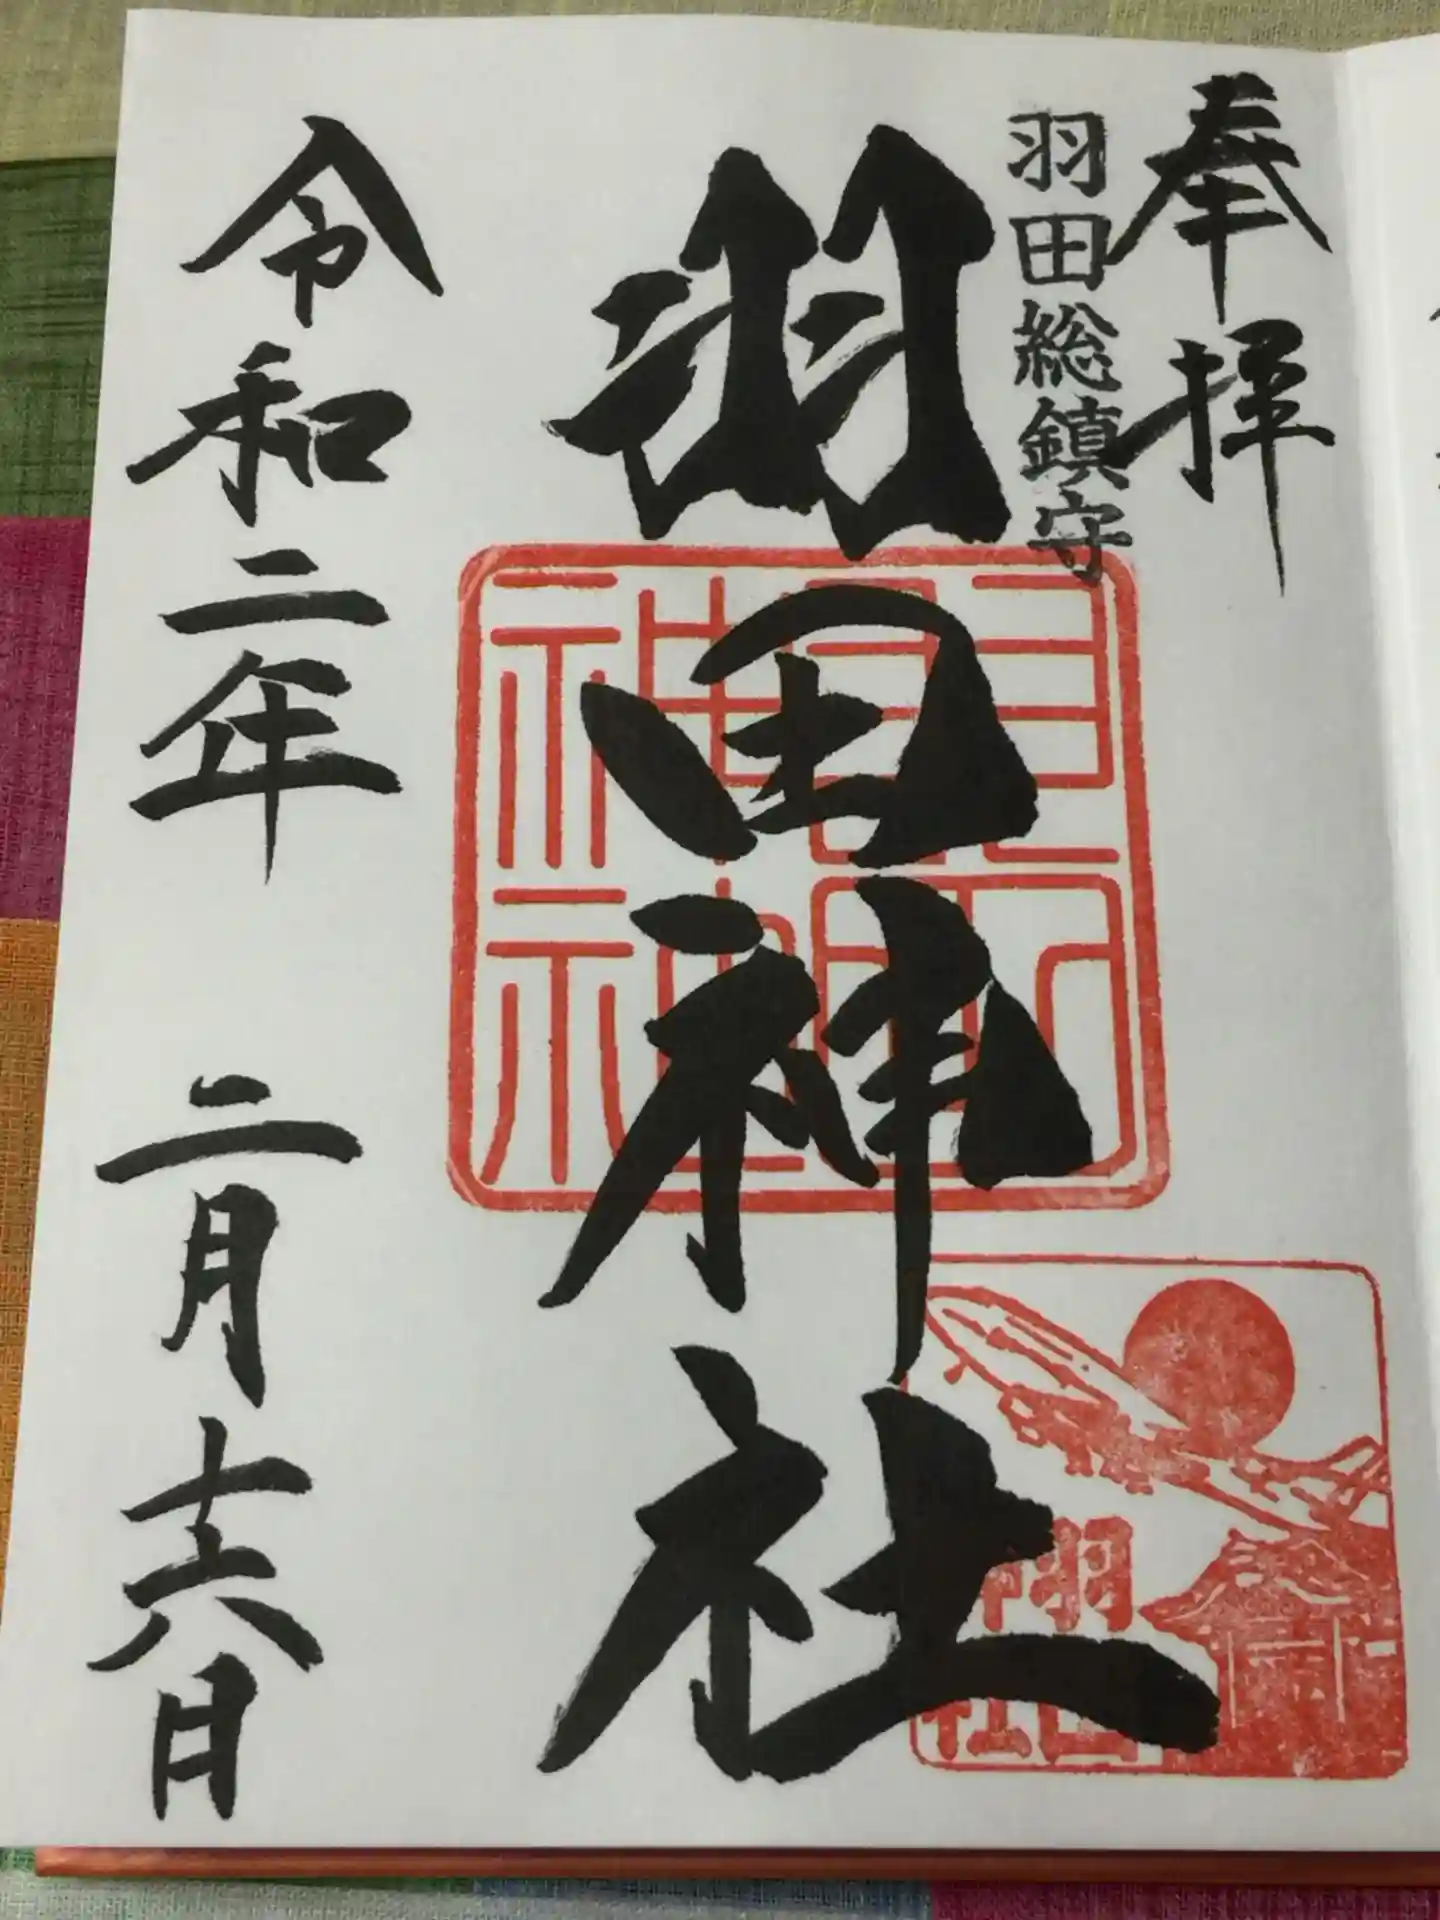 奉拝
羽田総鎮守
羽田神社
令和二年 二月十六日
羽田
神社